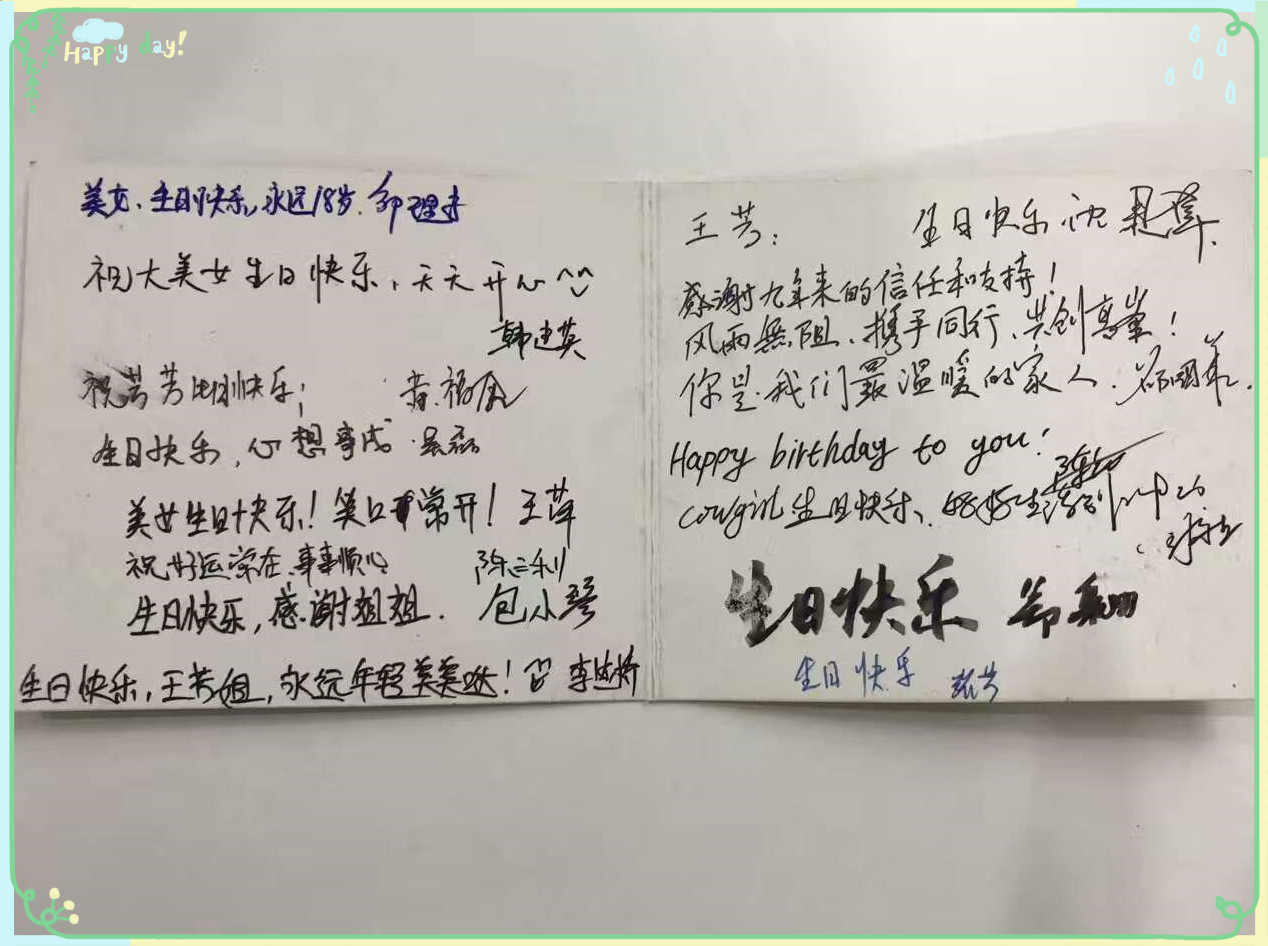 Happy day!
美女、生日快乐,永远18岁.
祝大美女生日快乐、天天开心^^
韩建英
祝芳芳生日快乐;
生日快乐,心想事成
美女生日快乐!笑口常开!王萍
祝好运常在.事事顺心 陈三利
生日快乐,感谢姐姐. 包小琴
生日快乐,王芳姐,永远年轻美美哒!
王芳: 生日快乐 沈
感谢九年来的信任和支持!
风雨無阻、携手同行、共创高峯!
你是我们最温暖的家人.
Happy birthday to you!
cowgirl 生日快乐、好好生活
生日快乐
生日快乐 张芳